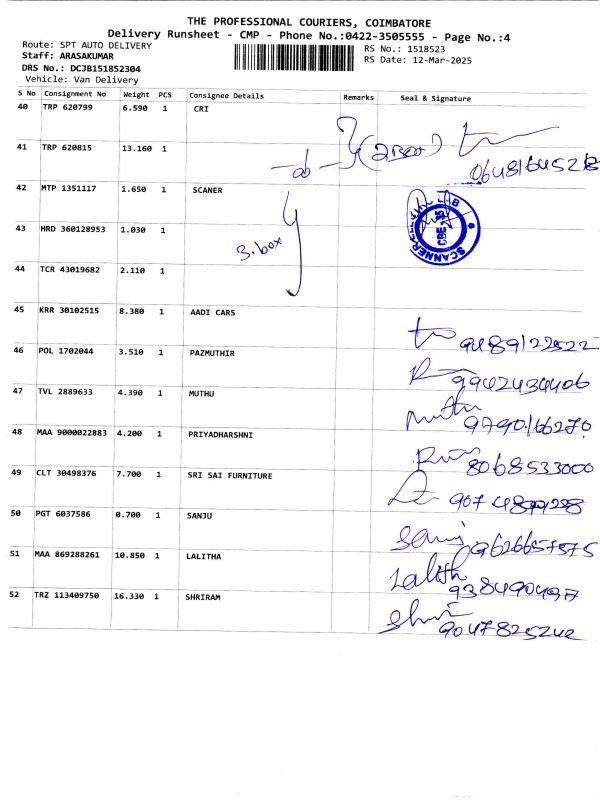 THE PROFESSIONAL COURIERS, COIMBATORE
Delivery Runsheet - CMP - Phone No.:0422-3505555 - Page No.:4
Route: SPT AUTO DELIVERY
RS No.: 1518523
Staff: ARASAKUMAR
RS Date: 12-Mar-2025
DRS No.: DCJB151852304
Vehicle: Van Delivery
S No Consignment No Weight PCS Consignee Details Remarks Seal & Signature
40 TRP 620799 6.590 1 CRI
41 TRP 620815 13.160 1
42 MTP 1351117 1.650 1 SCANER
43 HRD 360128953 1.030 1
3.box
44 TCR 43019682 2.110 1
45 KRR 30102515 8.380 1 AADI CARS
46 POL 1702044 3.510 1 PAZMUTHIR
47 TVL 2889633 4.390 1 MUTHU
48 MAA 9000022883 4.200 1 PRIYADHARSHNI
8068533000
49 CLT 30498376 7.700 1 SRI SAI FURNITURE
50 PGT 6037586 0.700 1 SANJU
9626657575
51 MAA 869288261 10.850 1 LALITHA
Lalith
52 TRZ 113409750 16.330 1 SHRIRAM
9047825242